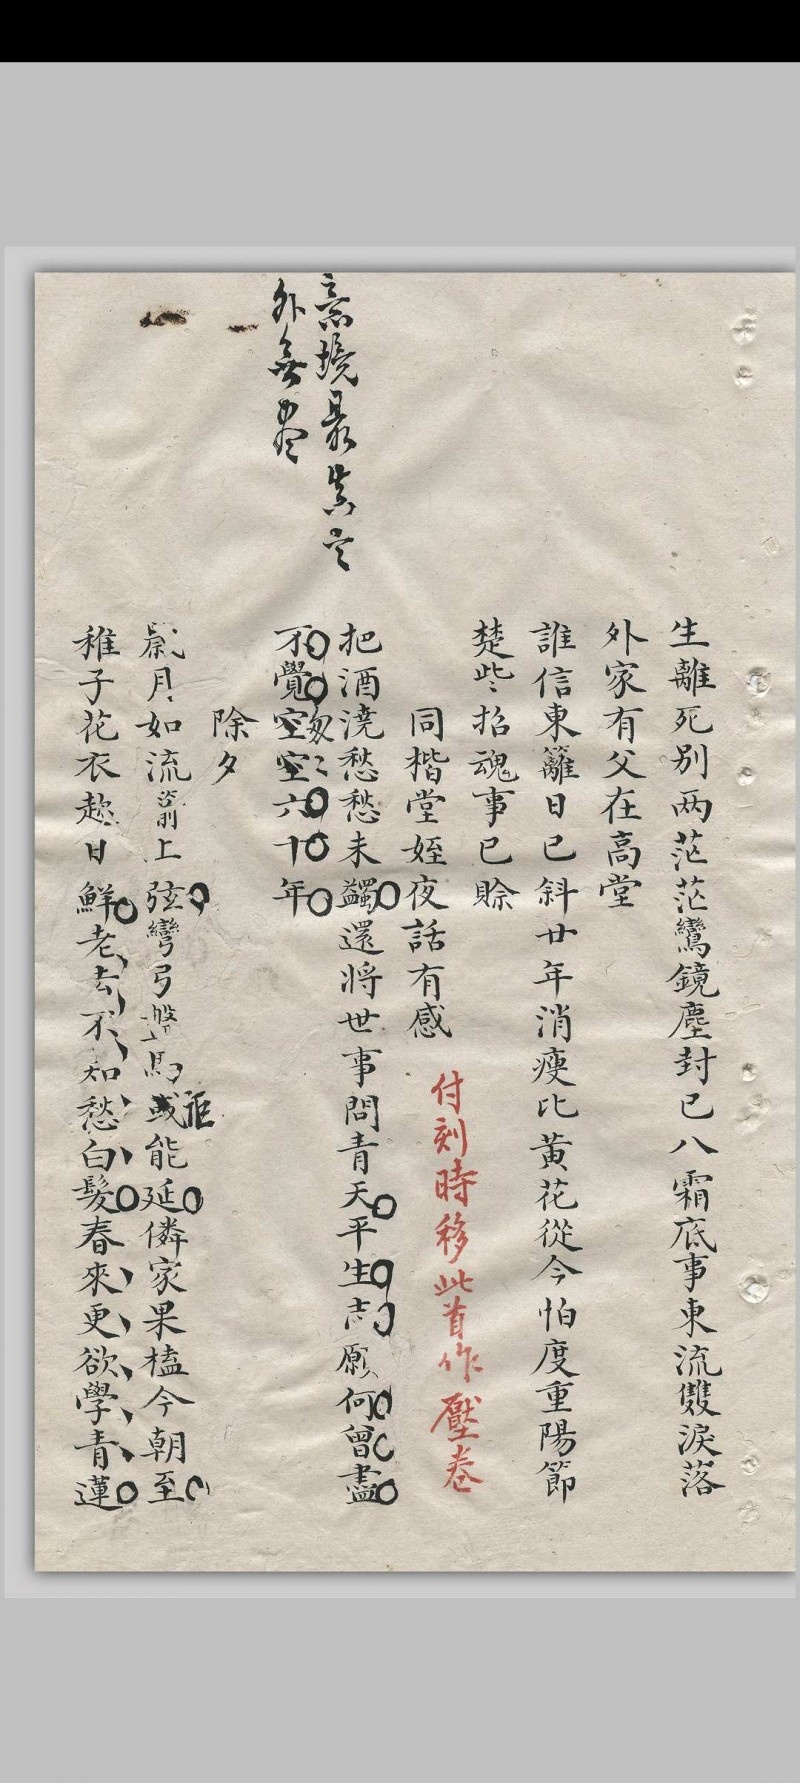 生離死別两茫茫鸞鏡塵封已八霜底事東流雙淚落
外家有父在高堂
誰信東籬日已斜廿年消瘦比黃花從今怕度重陽節
楚些招魂事已賒
同楷堂姪夜話有感
付刻時移此首作壓卷
把酒澆愁愁未蠲還將世事問青天平生志願何曾盡
不覺空空六十年
匆匆
意境最真言
外無盡
除夕
歲月如流箭上弦彎弓盤馬或能延鄰家果榼今朝至
詎
稚子花衣趁日鮮老去不知愁白髮春來更欲學青蓮